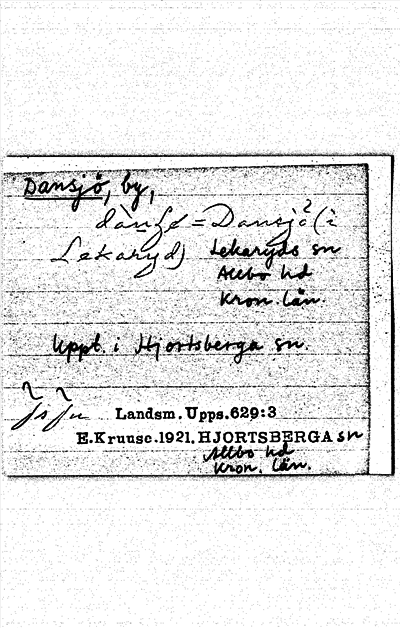 Dansjö, by,
= Dansjö (i
Lekaryd) Lekaryds sn
Allbo hd
Kron. län.
Uppl. i Hjortsberga sn.
Landsm. Upps. 629:3
E. Kruuse. 1921. HJORTSBERGA sn
Allbo hd
Kron. län.